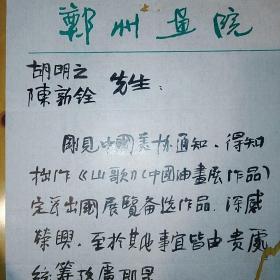 鄭州畫院
胡明之
陳新銓 先生：
剛見中國美協通知，得知
拙作《山歌》（中國油畫展作品）
定為出國展覽備選作品，深感
榮興，至於其他事宜皆由貴處
統籌